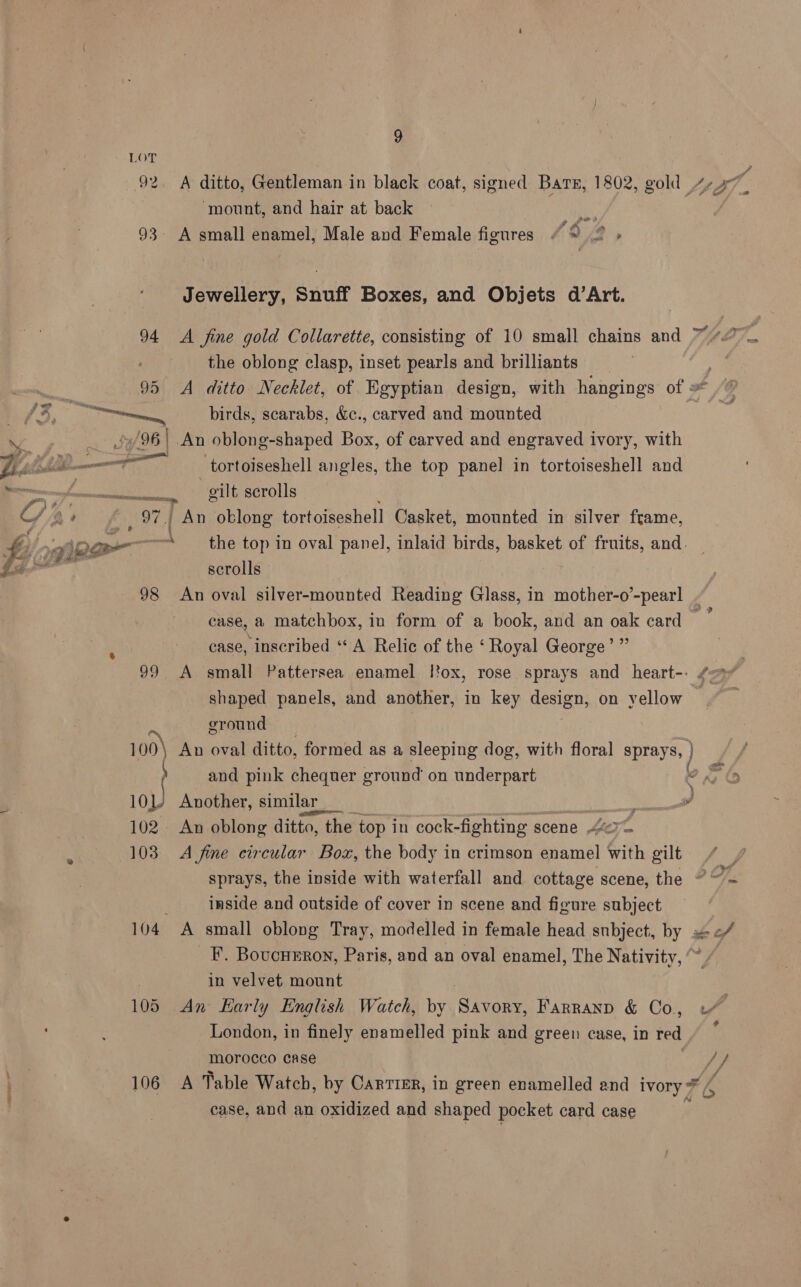 9
LOT
92. A ditto, Gentleman in black coat, signed BATE, 1802, gold
mount, and hair at back
93 A small enamel, Male and Female figures
Jewellery, Snuff Boxes, and Objets d'Art.
94 A fine gold Collarette, consisting of 10 small chains and
the oblong clasp, inset pearls and brilliants
95 A ditto Necklet, of Egyptian design, with hangings of
birds, scarabs, &c., carved and mounted
96 An oblong-shaped Box, of carved and engraved ivory, with
tortoiseshell angles, the top panel in tortoiseshell and
gilt scrolls
97 An oblong tortoiseshell Casket, mounted in silver frame,
the top in oval panel, inlaid birds, basket of fruits, and
scrolls
98 An oval silver-mounted Reading Glass, in mother-o'-pearl
case, a matchbox, in form of a book, and an oak card
case, inscribed “A Relic of the ‘Royal George’”
99 A small Battersea enamel Box, rose sprays and heart-
shaped panels, and another, in key design, on yellow
ground
100 An oval ditto, formed as a sleeping dog, with floral sprays,
and pink chequer ground on underpart
101 Another, similar
102 An oblong ditto, the top in cock-fighting scene
103 A fine circular Box, the body in crimson enamel with gilt
sprays, the inside with waterfall and cottage scene, the
inside and outside of cover in scene and figure subject
104 A small oblong Tray, modelled in female head subject, by
F. BOUCHERON, Paris, and an oval enamel, The Nativity,
in velvet mount
105 An Early English Watch, by SAVORY, FARRAND & Co.,
London, in finely enamelled pink and green case, in red
morocco case
106 A Table Watch, by CARTIER, in green enamelled and ivory
case, and an oxidized and shaped pocket card case